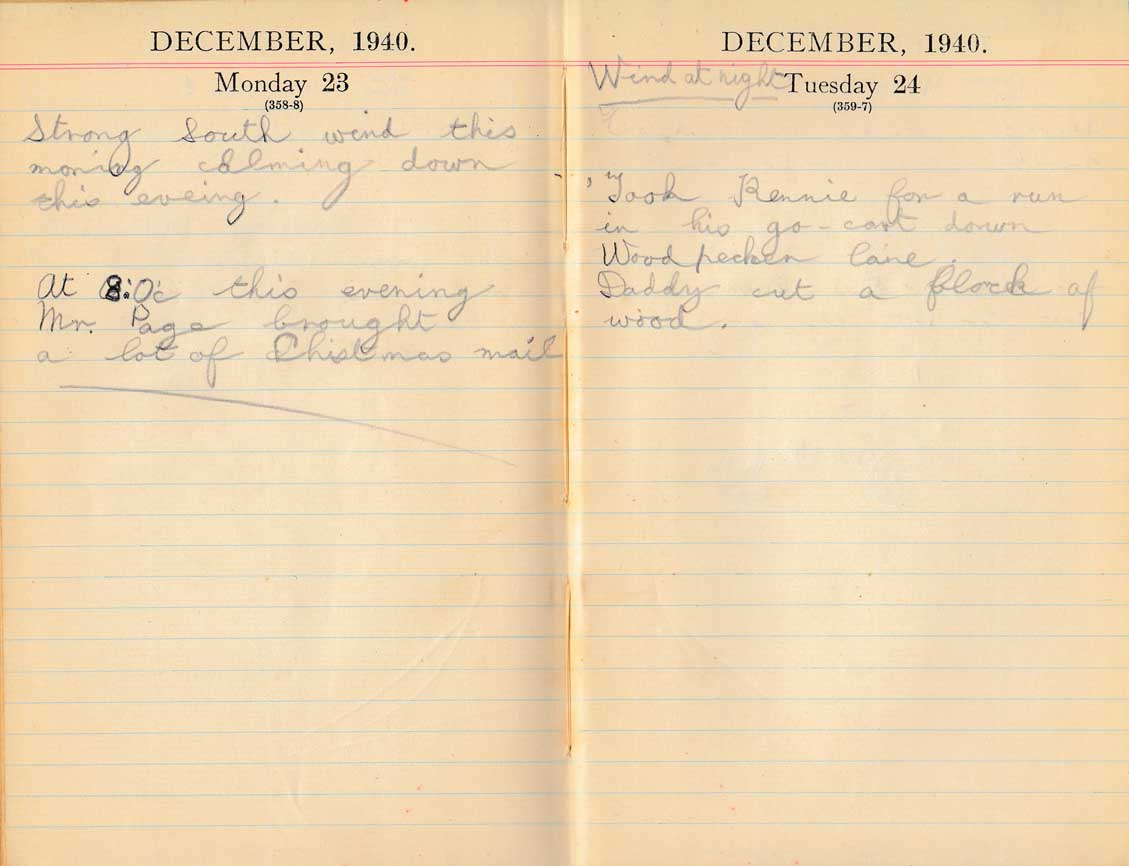 DECEMBER, 1940.
Monday 23
(358-8)
Strong South wind this
moning calming down
this eveing.
At 8:0c this evening
Mr. Page brought
a lot of Christmas mail
DECEMBER, 1940.
Wind at night Tuesday 24
(359-7)
Took Rennie for a run
in his go-cart down
Woodpecker lane.
Daddy cut a block of
wood.